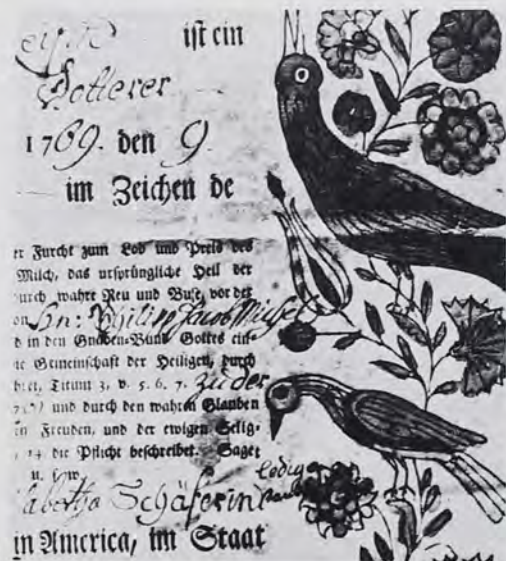 ist ein
Dotterer
1769. den 9.
im Zeichen de
er Furcht zum Lob und Preis des
Milch, das ursprüngliche Heil der
urch wahre Reu und Buße, vor der
on Hn: Philip Jacob Michel
d in den Gnaden-Bund Gottes ein-
ie Gemeinschaft der Heiligen, durch
Titum 3, v. 5. 6. 7. zu der
und durch den wahren Glauben
in Freuden, und der ewigen Selig-
14 die Pflicht beschreibet. Saget
u. s. w.
ledig
abetha Schäferin
in America, im Staat